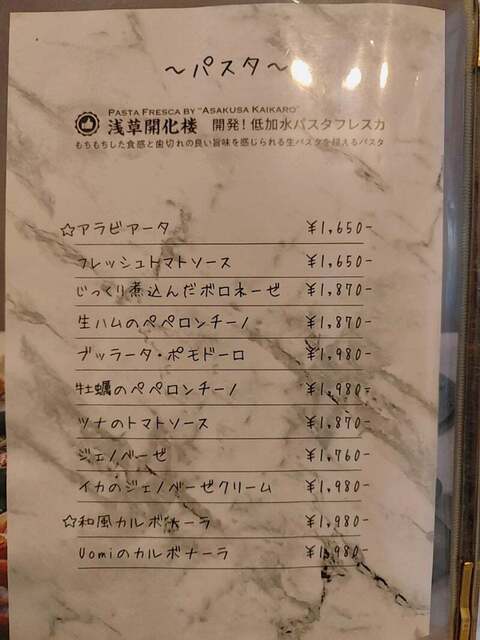 ～パスタ～
PASTA FRESCA BY "ASAKUSA KAIKARO"
浅草開化楼 開発!低加水パスタフレスカ
もちもちした食感と歯切れの良い旨味を感じられる生パスタを超えるパスタ
☆アラビアータ ¥1,650-
フレッシュトマトソース ¥1,650-
じっくり煮込んだボロネーゼ ¥1,870-
生ハムのペペロンチーノ ¥1,870-
ブッラータ・ポモドーロ ¥1,980-
牡蠣のペペロンチーノ ¥1,980-
ツナのトマトソース ¥1,870-
ジェノベーゼ ¥1,760-
イカのジェノベーゼクリーム ¥1,980-
☆和風カルボナーラ ¥1,980-
Uomiのカルボナーラ ¥1,980-